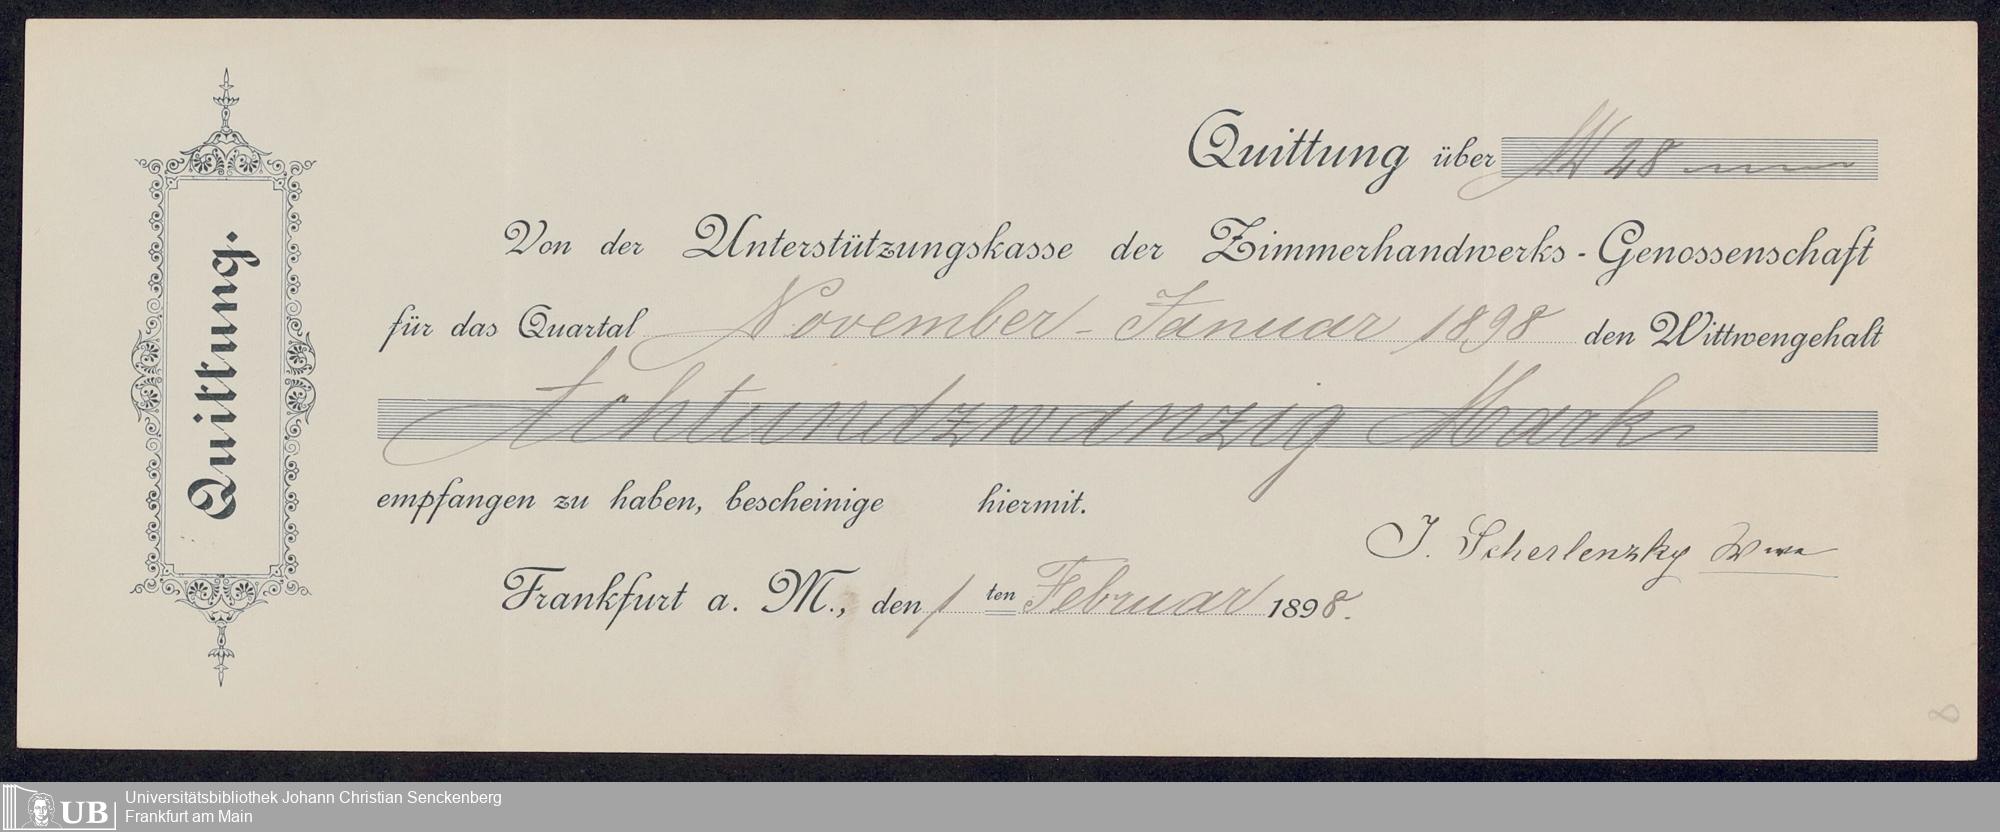 Quittung.
Quittung über M 28
Von der Unterstützungskasse der Zimmerhandwerks-Genossenschaft
für das Quartal November - Januar 1898 den Wittwengehalt
Achtundzwanzig Mark
empfangen zu haben, bescheinige hiermit.
J. Scherlenzky Wwe
Frankfurt a. M., den 1 ten Februar 1898.
8
UB
Universitätsbibliothek Johann Christian Senckenberg
Frankfurt am Main